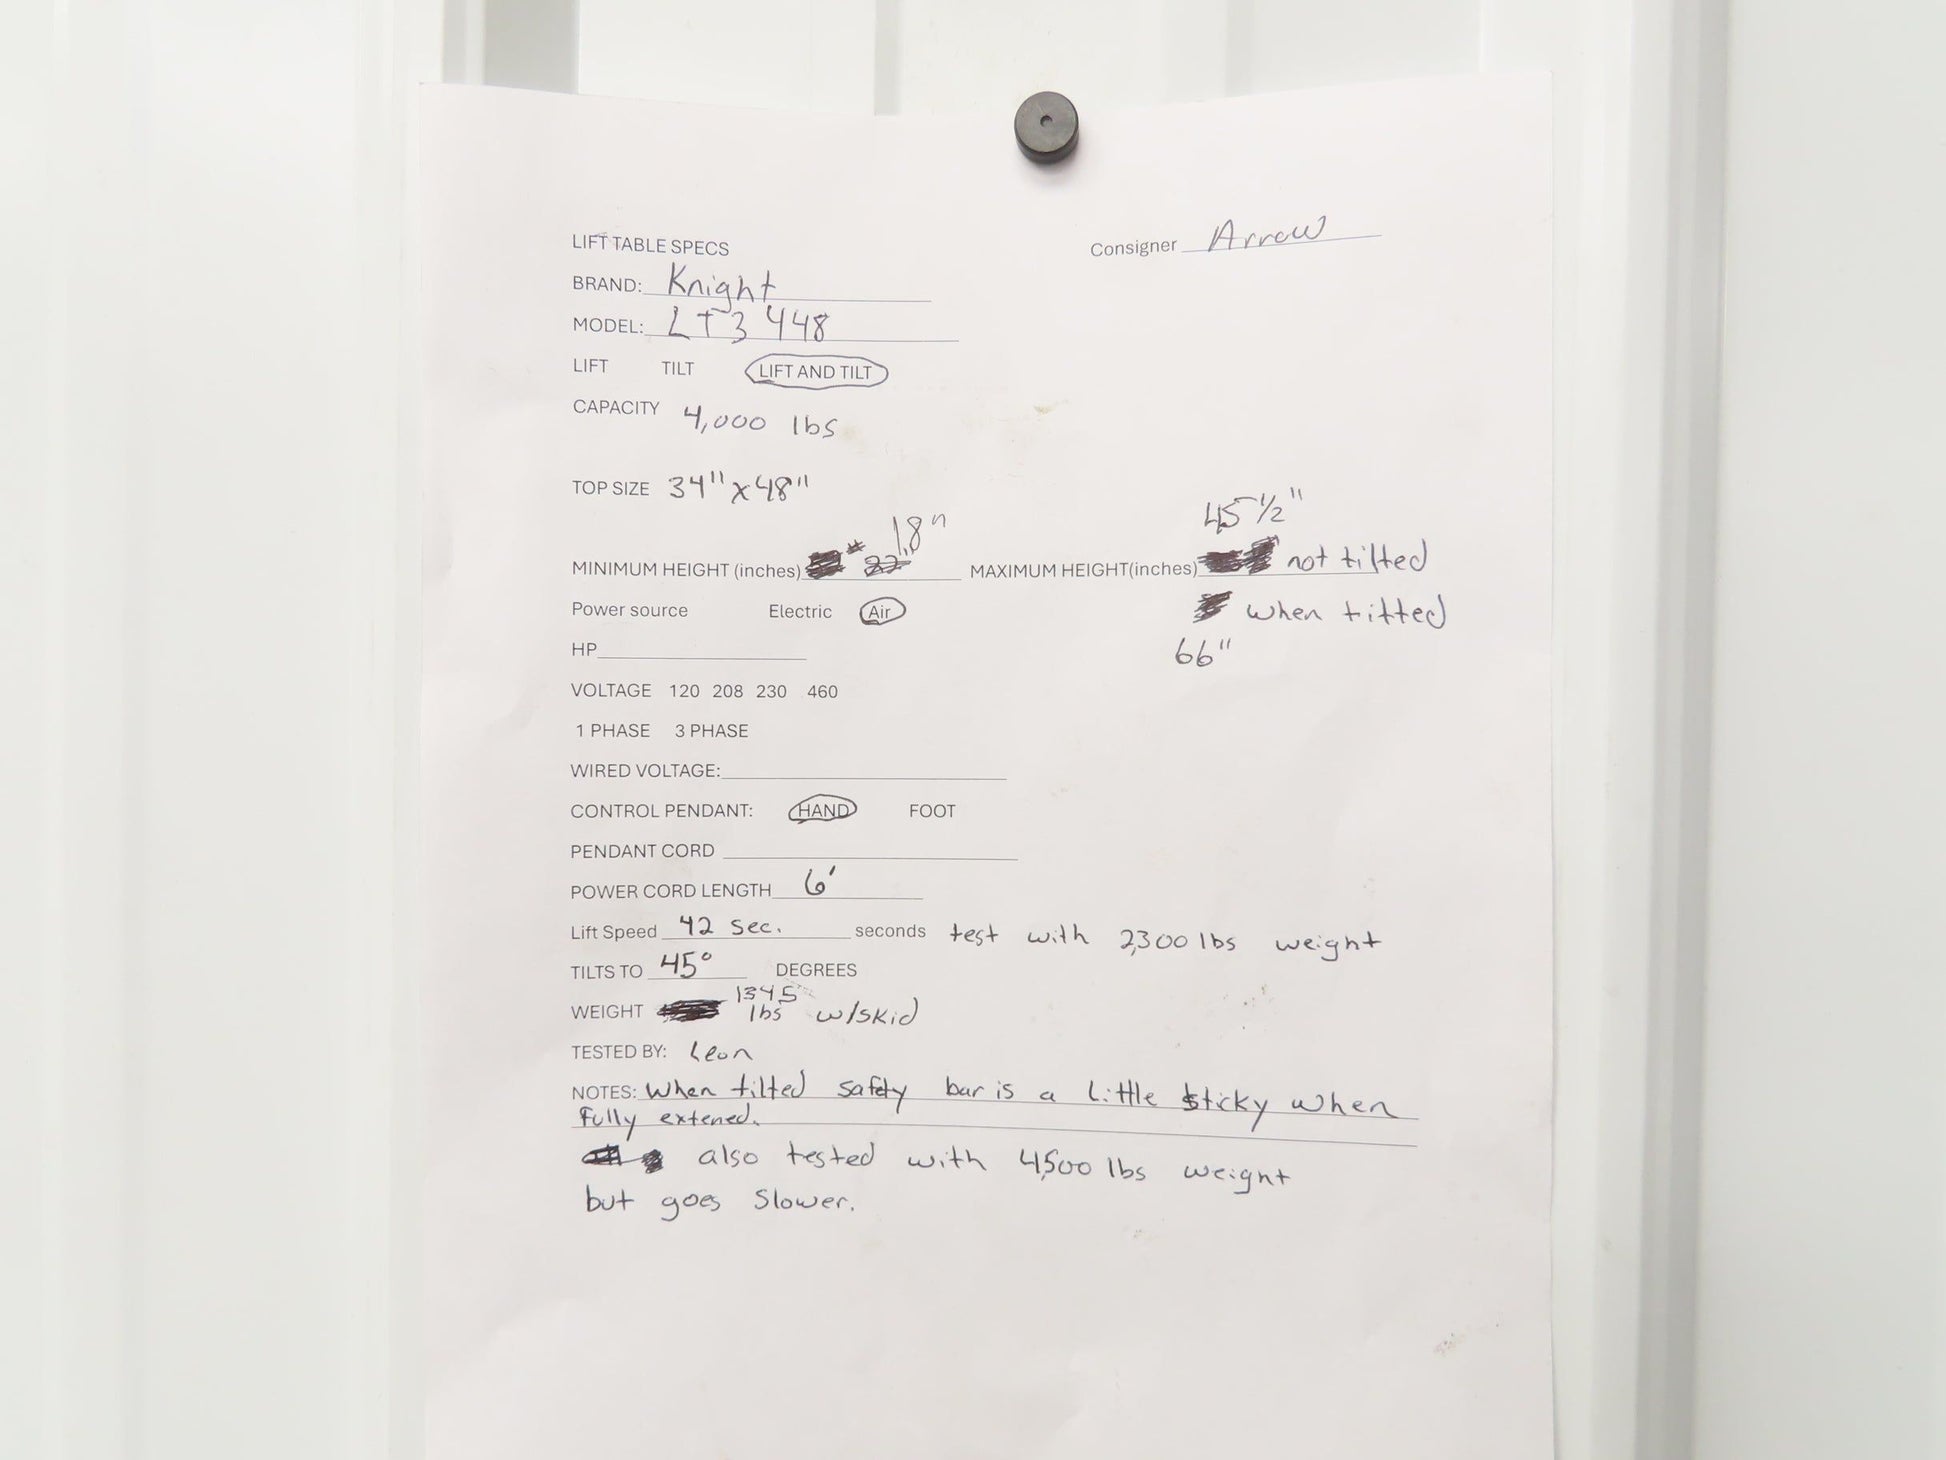 LIFT TABLE SPECS Consigner Arrow
BRAND: Knight
MODEL: LT3448
LIFT TILT LIFT AND TILT
CAPACITY 4,000 lbs
TOP SIZE 34" x 48"
18" 45 1/2"
MINIMUM HEIGHT (inches) 22" MAXIMUM HEIGHT(inches) not tilted
Power source Electric Air when titted
HP 66"
VOLTAGE 120 208 230 460
1 PHASE 3 PHASE
WIRED VOLTAGE:
CONTROL PENDANT: HAND FOOT
PENDANT CORD
POWER CORD LENGTH 6'
Lift Speed 42 sec. seconds test with 2,300 lbs weight
TILTS TO 45° DEGREES
WEIGHT 1345 lbs w/skid
TESTED BY: Leon
NOTES: When tilted safety bar is a little sticky when
fully extened.
also tested with 4,500 lbs weight
but goes slower.